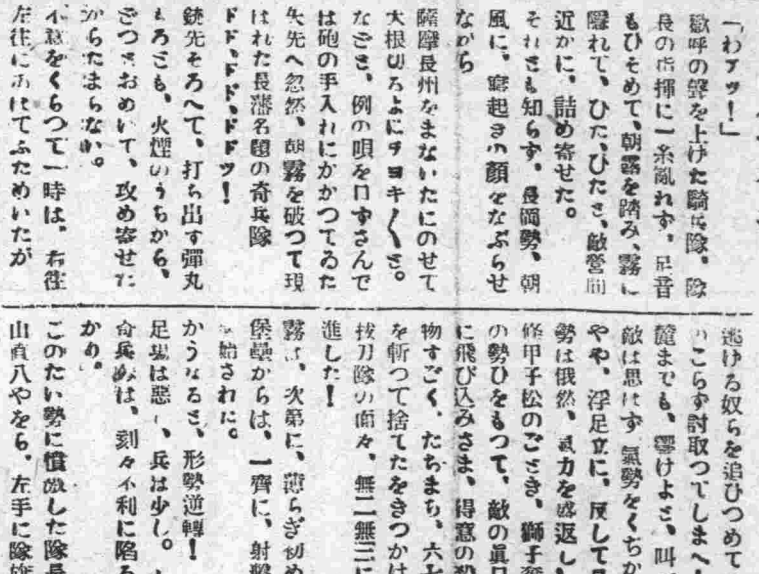 「わアッ！」
歓呼の聲を上げた騎兵隊、隊
長の指揮に一糸亂れず、足音
もひそめて、朝露を踏み、霧に
隠れて、ひた、ひたと、敵營間
近かに、詰め寄せた。
それとも知らず、長岡勢、朝
風に、寝起きの顔をなぶらせ
ながら
薩摩長州をまないたにのせて
大根切るよにチヨキ〱と。
などと、例の唄を口ずさんで
は砲の手入れにかかつてゐた
矢先へ忽然、朝霧を破つて現
はれた長藩名題の奇兵隊
ドド、ドド、ドドッ！
銃先そろへて、打ち出す彈丸
もろとも、火煙のうちから、
どつとおめいて、攻め寄せた
からたまらない。
不意をくらつて一時は、右往
左往にあはてふためいたが
逃ける奴らを追ひつめて
のこらず討取つてしまへ
麓までも、響けよと、叫
敵は思はず氣勢をくぢか
やや、浮足立に、反して
勢は俄然、氣力を盛返し
修甲子松のごとき、獅子奮
の勢ひをもつて、敵の眞
に飛び込みさま、得意の
物すごく、たちまち、六七
を斬つて捨てたをきつかけ
抜刀隊の面々、無二無三に
進した！
霧は、次第に、薄らぎ初め
堡壘からは、一齊に、射撃
始された。
かうなると、形勢逆轉！
足場は惡し、兵は少し。
奇兵隊は、刻々不利に陥る
かり。
このたい勢に憤激した隊長
山眞八やをら、左手に隊旗